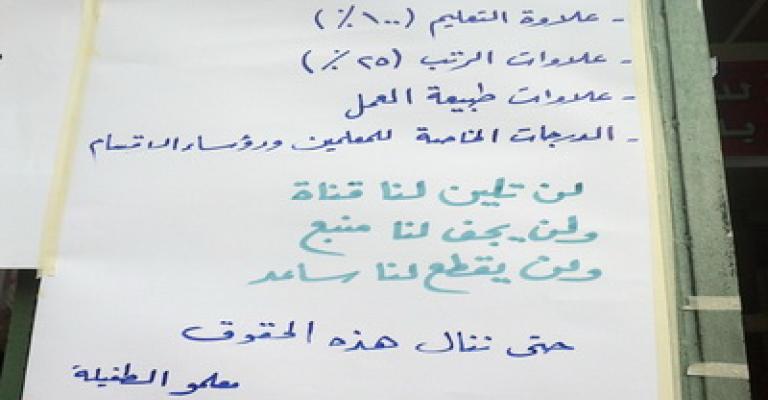 - علاوة التعليم (١٠٠٪)
- علاوات الرتب (٢٥٪)
- علاوات طبيعة العمل
- الدرجات الخاصة للمعلمين ورؤساء الاقسام
لن تلين لنا قناة
ولن يجف لنا منبع
ولن يقطع لنا ساعد
حتى ننال هذه الحقوق
معلمو الطفيلة